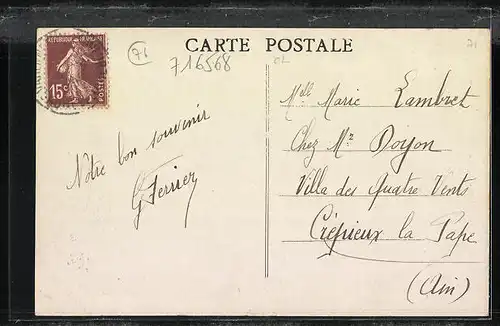 CARTE POSTALE
RÉPUBLIQUE FRANÇAISE
15c
POSTES
76
716568
Notre bon souvenir
G Ferrier
Mlle Marie Lambret
Chez Mr Doyon
Villa des Quatre Vents
Crépieux la Pape
(Ain)